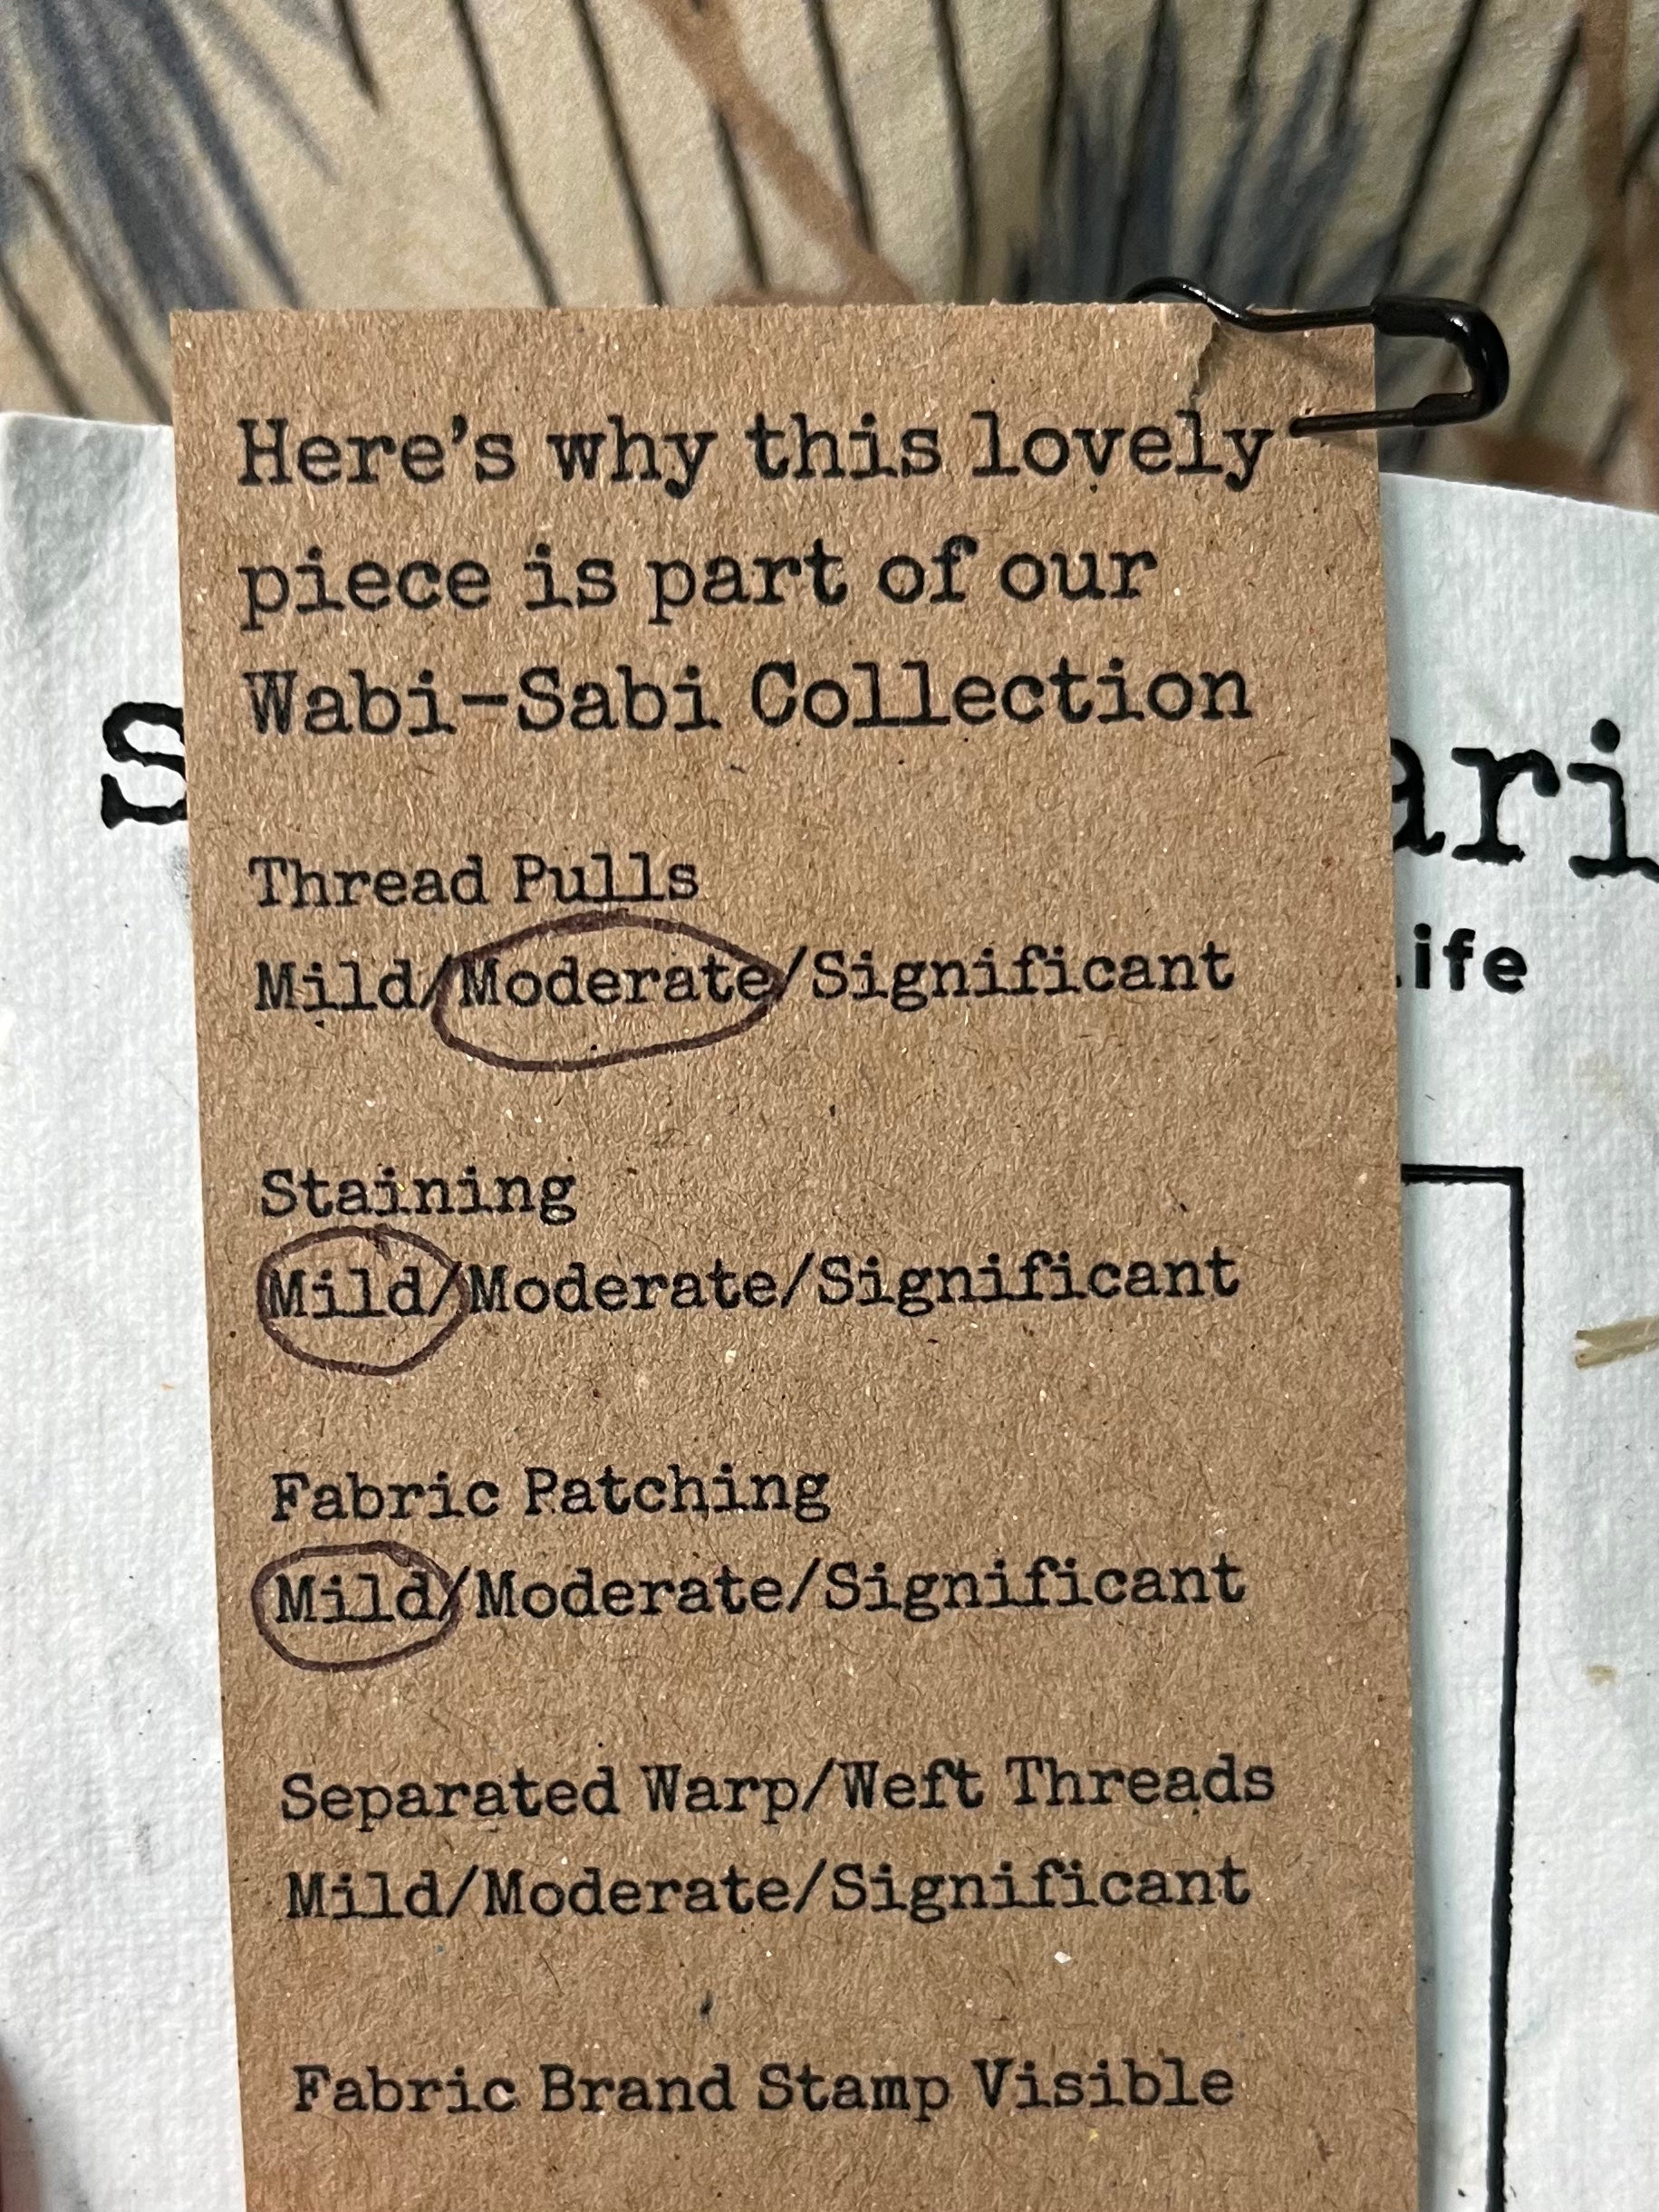 Here's why this lovely
piece is part of our
Wabi-Sabi Collection
Thread Pulls
Mild/Moderate/Significant
Staining
Mild/Moderate/Significant
Fabric Patching
Mild/Moderate/Significant
Separated Warp/Weft Threads
Mild/Moderate/Significant
Fabric Brand Stamp Visible